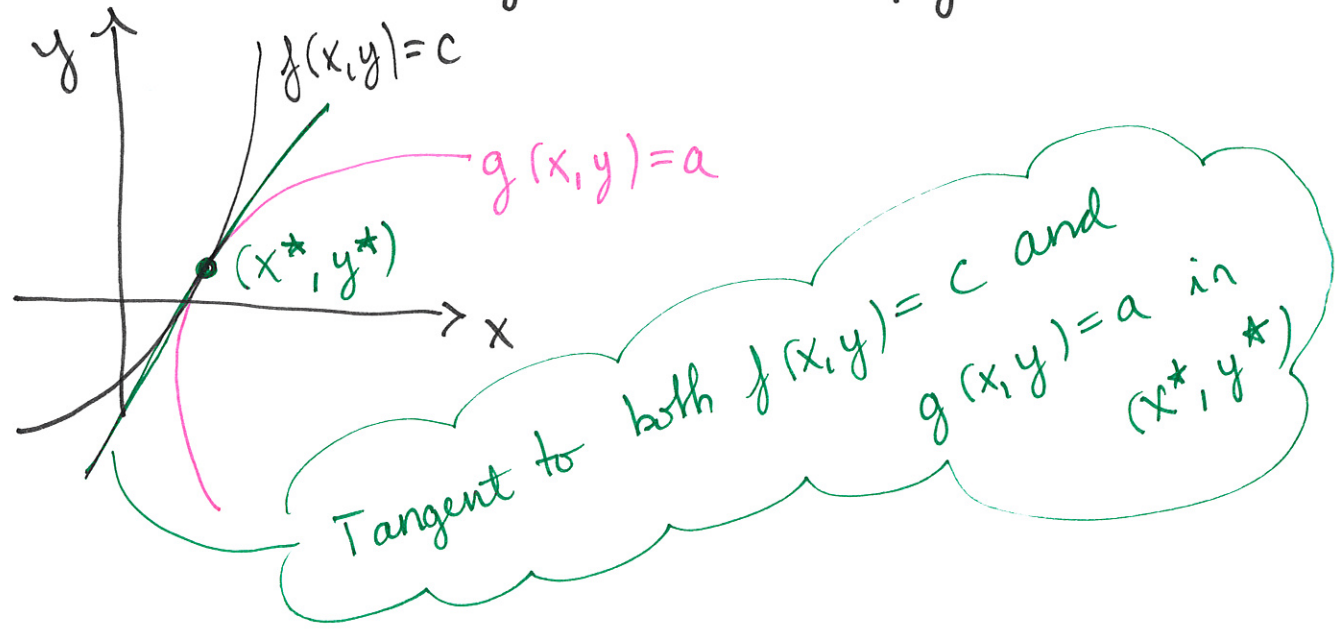 y
f(x,y)=c
g(x,y)=a
(x*,y*)
x
Tangent to both f(x,y)=c and
g(x,y)=a in
(x*,y*)